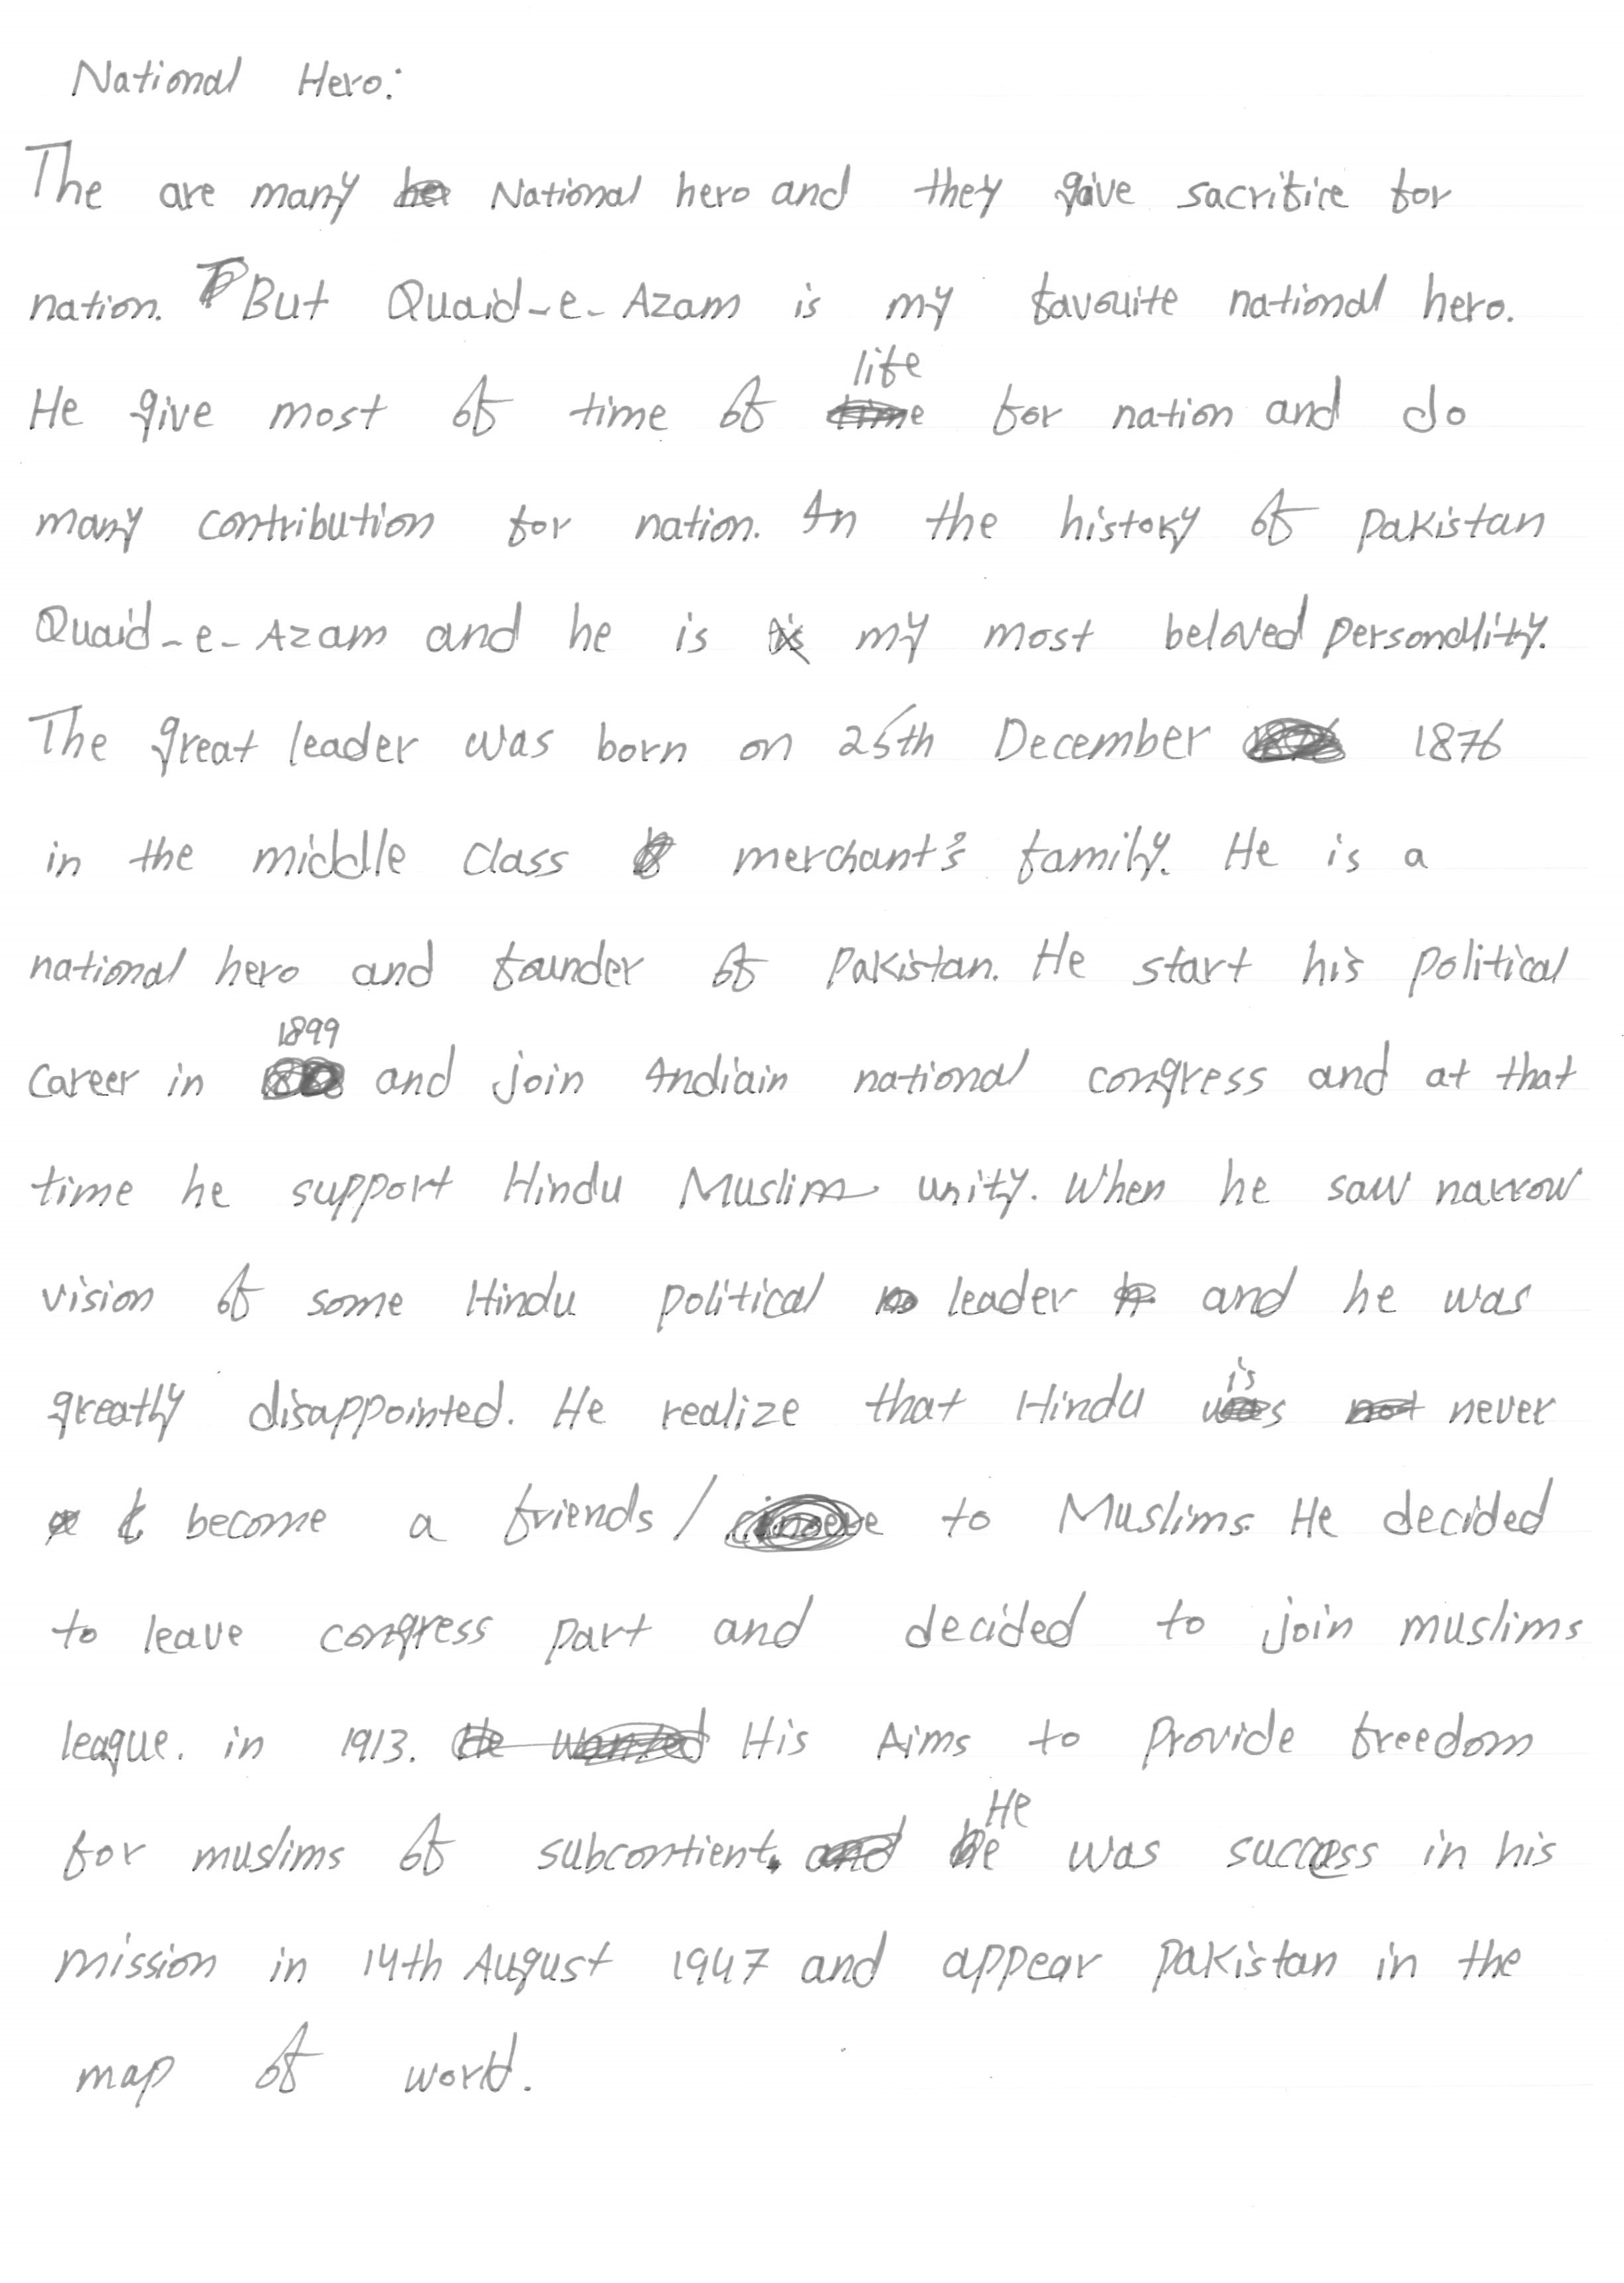 National Hero:
The are many National hero and they give sacrifice for
nation. But Quaid-e-Azam is my favouite national hero.
He give most of time of life for nation and do
many contribution for nation. In the history of pakistan
Quaid-e-Azam and he is my most beloved personality.
The great leader was born on 25th December 1876
in the middle class merchant's family. He is a
national hero and founder of Pakistan. He start his political
career in 1899 and join Indiain national congress and at that
time he support Hindu Muslim unity. When he saw narrow
vision of some Hindu political leader and he was
greatly disappointed. He realize that Hindu is never
become a friends / to Muslims. He decided
to leave congress part and decided to join muslims
league. in 1913. His Aims to provide freedom
for muslims of subcontient. He was success in his
mission in 14th August 1947 and appear pakistan in the
map of world.